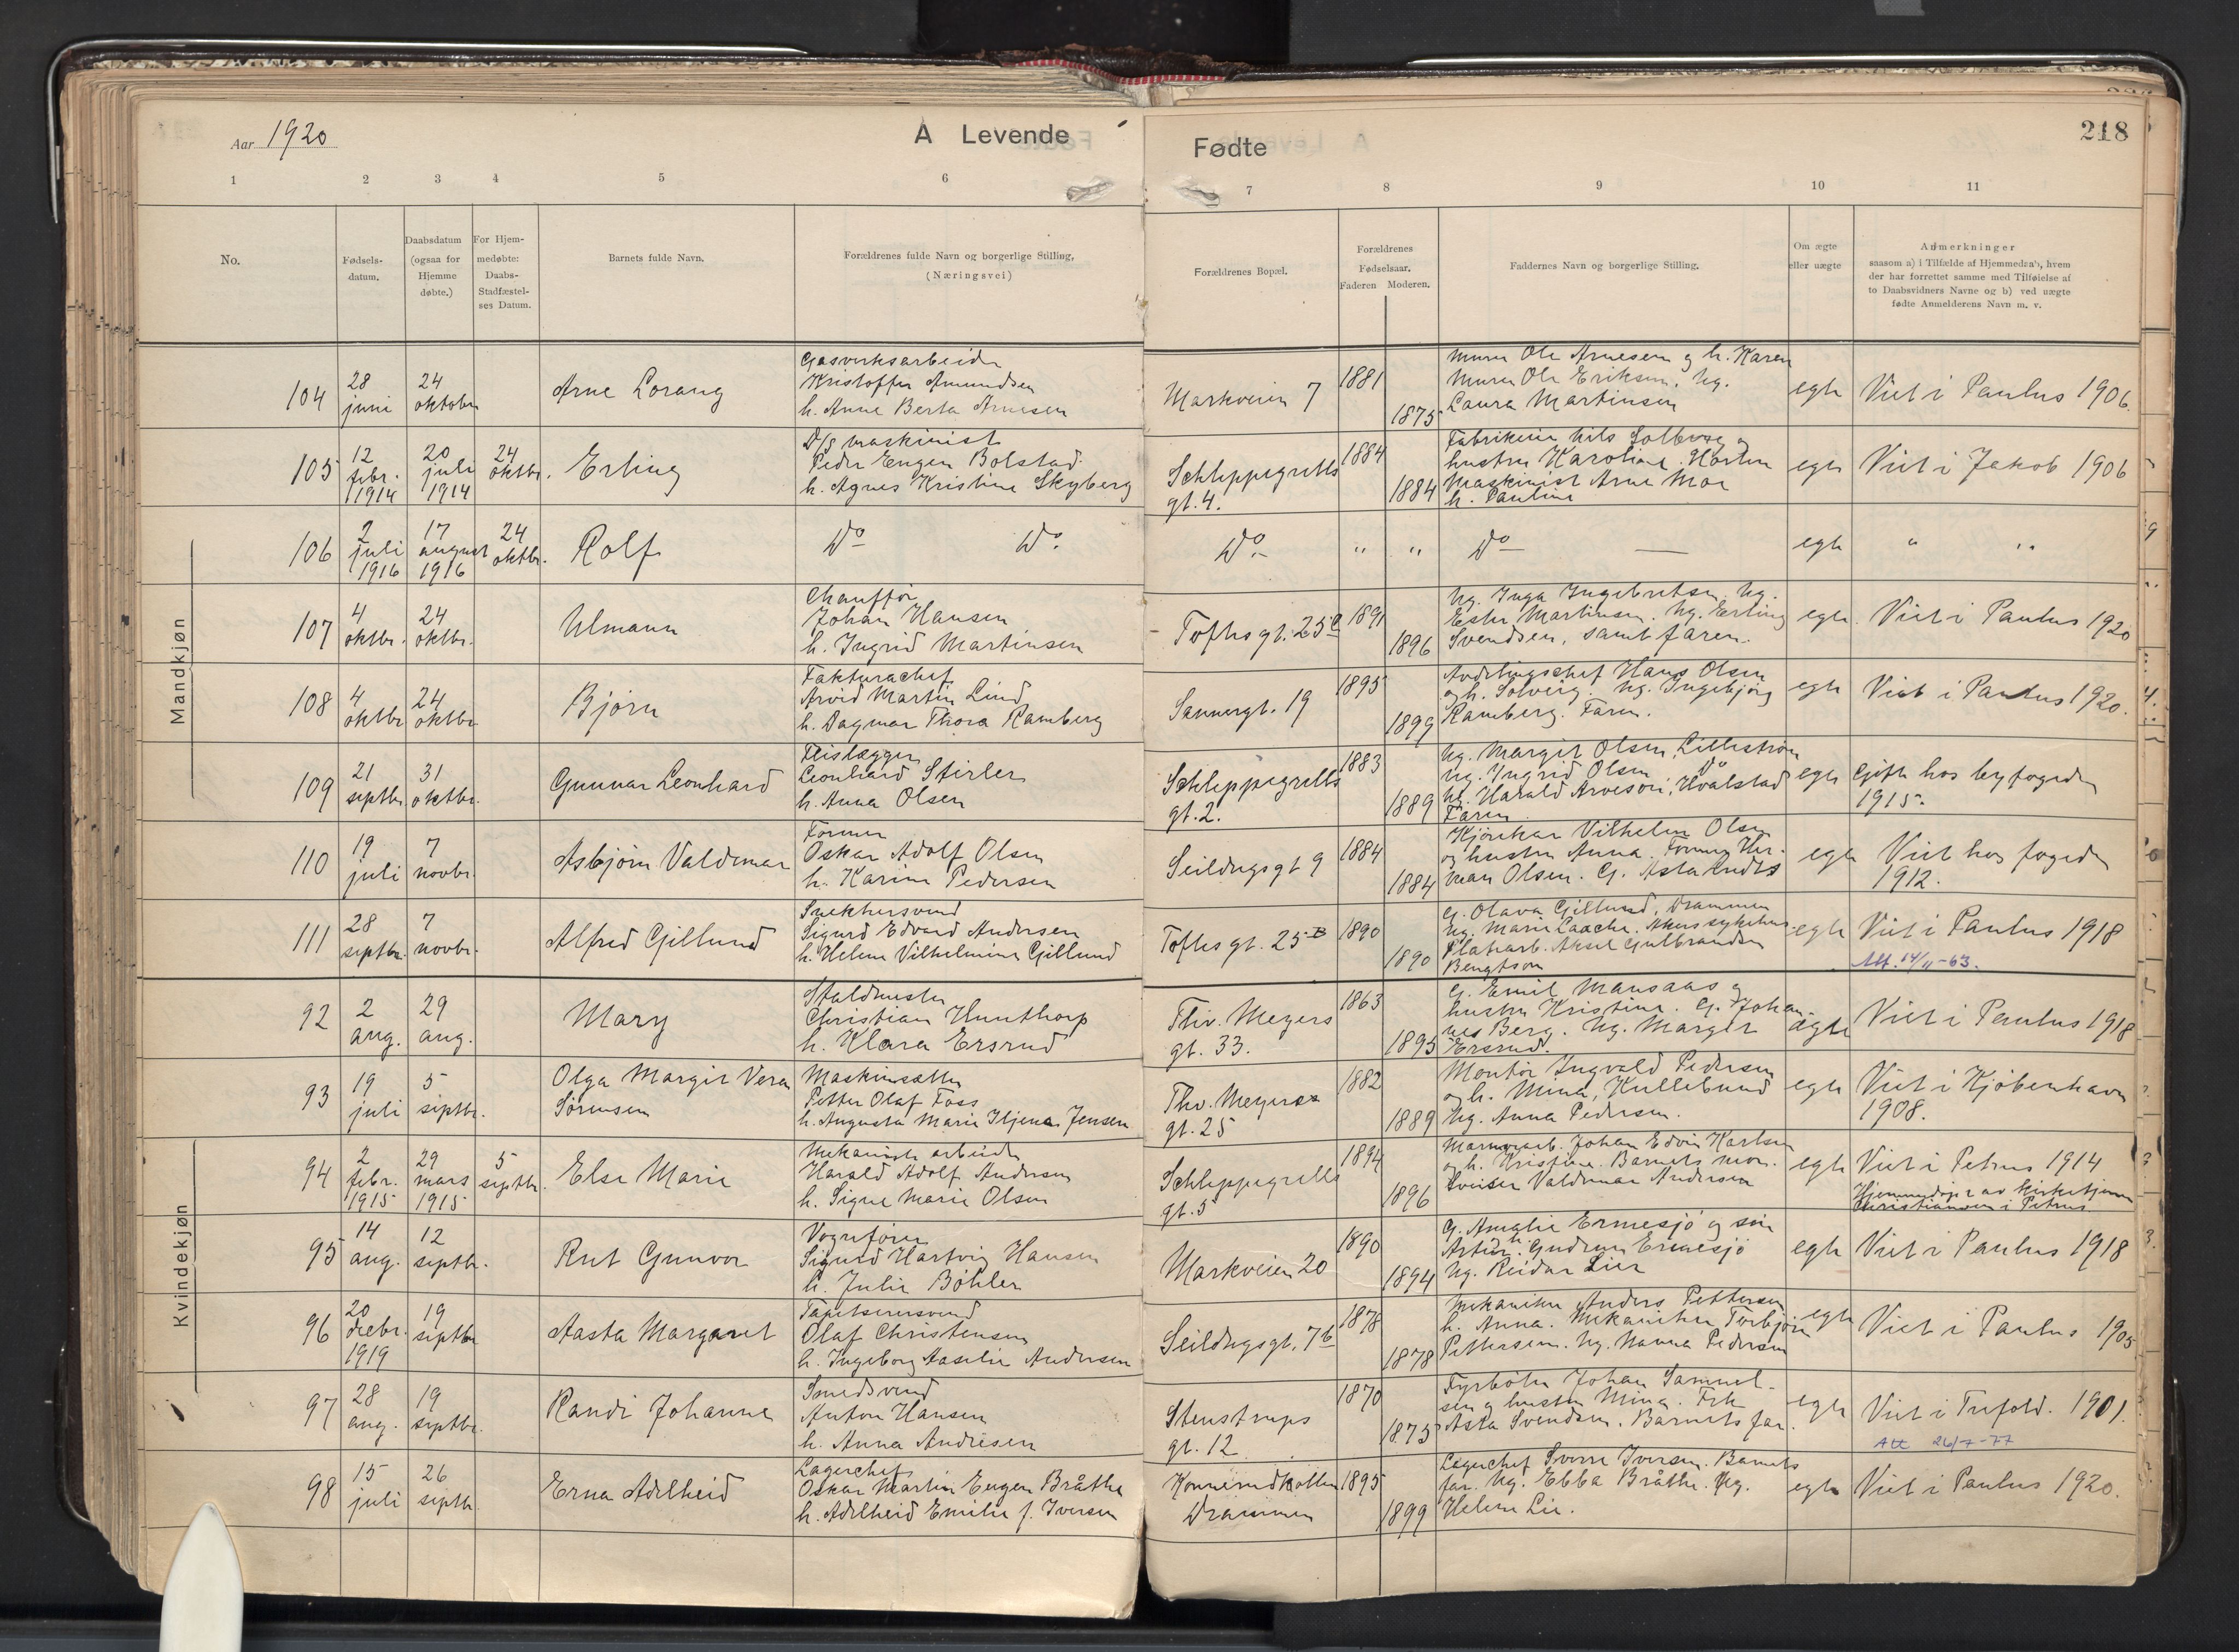 Aar 1920
A Levende
Fødte
218
1 2 3 4 5 6 7 8 9 10 11
No.
Fødsels-
datum.
Daabsdatum
(ogsaa for
Hjemme
døbte.)
For Hjem-
medøbte:
Daabs-
Stadfæstel-
ses Datum.
Barnets fulde Navn.
Forældrenes fulde Navn og borgerlige Stilling.
(Næringsvei)
Forældrenes Bopæl.
Forældrenes
Fødselsaar.
Faderen Moderen.
Faddernes Navn og borgerlige Stilling.
Om ægte
eller uægte
Anmerkninger
saasom a) i Tilfælde af Hjemmedaab, hvem
der har forrettet samme med Tilføielse af
to Daabsvidners Navne og b) ved uægte
fødte Anmelderens Navn m. v.
Mandkjøn
104
28
juni
24
oktober
Arne Lorang
Gasverksarbeider
Kristoffer Amundsen
h. Anne Berta Arnesen
Markveien 7
1881
1875
Murer Ole Arnesen og h. Karen
Murer Ole Eriksen. Ug.
Laura Martinsen
egte
Viet i Paulus 1906.
105
12
febr.
1914
20
juli
1914
24
oktbr.
Erling
D/s maskinist
Peder Eugen Bolstad
h. Agnes Kristine Skyberg
Schleppegrells
gt. 4.
1884
1884
Fabrikeier Nils Solberg og
hustru Karoline, Horten
Maskinist Arne Moe
h. Pauline
egte
Viet i Jakob 1906
106
2
juli
1916
17
august
1916
24
oktbr.
Rolf
Do Do.
Do
" "
Do —
egte
" "
107
4
oktbr.
24
oktbr.
Ulmann
Chauffør
Johan Hansen
h. Ingrid Martinsen
Toftesgt. 25
1891
1896
Ug. Inga Ingebretsen. Ug.
Ester Martinsen. Ug. Erling
Svendsen, samt faren.
egte.
Viet i Paulus 1920
108
4
oktbr
24
oktbr.
Bjørn
Fakturachef
Arvid Martin Lind
h. Dagmar Thora Ramberg
Sannergt. 19
1895
1899
Avdelingschef Hans Olsen
og h. Solveig. Ug. Ingebjørg
Ramberg. Faren.
egte
Viet i Paulus 1920.
109
21
septbr.
31
oktbr.
Gunnar Leonhard
Fliselægger
Leonhard Stirler
h. Anna Olsen
Schleppegrells
gt. 2.
1883
1889
Ug. Margit Olsen, Lillestrøm
Ug. Ingrid Olsen Do
Ug. Harald Arvesen, Hvalstad
Faren
egte
Gift hos byfogeden
1915.
110
19
juli
7
novbr.
Asbjørn Valdemar
Former
Oskar Adolf Olsen
h. Karine Pedersen
Seildugsgt 9
1884
1884
Kjørekar Vilhelm Olsen
og hustru Anna. Former Her-
man Olsen. G. Asta
egte
Viet hos fogeden
1912.
111
28
septbr.
7
novbr.
Alfred Gjellund
Snekkersvend
Sigurd Edvard Andersen
h. Helene Vilhelmine Gjellund
Toftesgt. 25 B
1890
1890
G. Olava Gjellund, Drammen
Ug. Marie Laache, Akers sykehus
Platearb. Aksel Gulbrandsen
Bengtson
egte
Viet i Paulus 1918
Att. 14/11-63.
Kvindekjøn
92
2
aug.
29
aug.
Mary
Staldmester
Christian Hunthorp
h. Klara Ersrud
Thv. Meyers
gt. 33.
1863
1895
G. Emil Mansaas og
hustru Kristine. G. Johan-
nes Berg. Ug. Margit
Ersrud.
ægte
Viet i Paulus 1918
93
19
juli
5
septbr.
Olga Margit Vera
Sørensen
Maskinsætter
Petter Olaf Foss
h. Augusta Marie Jensen
Thv. Meyers
gt. 25
1882
1889
Montør Ingvald Pedersen
og h. Mina, Kullebund
Ug. Anna Pedersen.
egte
Viet i Kjøbenhavn
1908.
94
2
febr.
1915
29
mars
1915
5
septbr.
Else Marie
Mekanisk arbeider
Harald Adolf Andersen
h. Signe Marie Olsen
Schleppegrells
gt. 5
1894
1896
Marmorarb. Johan Edvin Karlsen
og h. Kristine. Barnets mor.
Sveiser Valdemar Andersen
egte
Viet i Petrus 1914
Hjemmedøpt av kirketjener
Christiansen i Petrus.
95
14
aug.
12
septbr.
Rut Gunvor
Vognfører
Sigurd Hartvig Hansen
h. Julie Böhler
Markveien 20
1890
1894
G. Amalie Ermesjø og søn
Artur. h. Gudrun Ermesjø
Ug. Reidar Lier
egte
Viet i Paulus 1918
96
20
decbr.
1919
19
septbr
Aasta Margaret
Tapetserersvend
Olaf Christensen
h. Ingeborg Aaselie Andersen
Seildugsgt. 7b
1878
1878
Mekaniker Anders Pettersen
h. Anna. Mekaniker Torbjørn
Pettersen. Ug. Nanna Pedersen
egte
Viet i Paulus 1905
97
28
aug.
19
septbr.
Randi Johanne
Smedsvend
Anton Hansen
h. Anna Andresen
Stenstrups
gt. 12
1870
1875
Fyrbøter Johan Samuel-
sen og hustru Mina. Frk
Asta Svendsen. Barnets far.
egte
Viet i Trefold. 1901.
Att 26/7-77
98
15
juli
26
septbr.
Erna Adelheid
Lagerchef
Oskar Martin Eugen Bråthe
h. Adelheid Emilie f. Iversen
Konnerudkollen
Drammen
1895
1899
Lagerchef Sverre Iversen. Barnets
far. Ug. Ebba Bråthe. Ug.
Helene Lie.
egte
Viet i Paulus 1920.